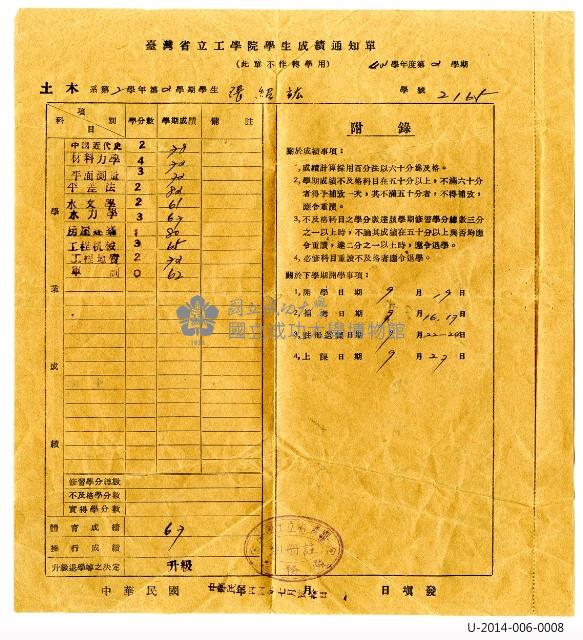 臺灣省立工學院學生成績通知單
(此單不作轉學用) 學年度第2學期
土木系第2學年第2學期學生 張紹 學號 2165
科項目別 學分數 學期成績 備註
中國近代史 2 78
材料力學 4 70
平面測量 3 70
平差法 2 80
水文學 2 61
水力學 3 67
房屋建築 1 80
工程机械 3 65
工程地質 2 70
軍訓 0 62
學業成績
修習學分總數
不及格學分數
實得學分數
體育成績 67
操行成績
升級退學等之決定 升級
附錄
關於成績事項：
1,成績計算採用百分法以六十分為及格。
2,學期成績不及格科目在五十分以上，不滿六十分
者得予補放一次，其不滿五十分者，不得補放，
應令重讀。
3,不及格科目之學分數達該學期修習學分總數三分
之一以上時，不論其成績在五十分以與否均應
令重讀，達二分之一以上時，應令退學。
4,必修科目重讀不及格者應令退學。
關於下學期開學事項：
1,開學日期 9月19日
2,補考日期 9月16,17日
3,註冊選課日期 9月22-24日
4,上課日期 9月27日
國立成功大學
國立成功大學博物館
1931
中華民國 年 月 日填發
U-2014-006-0008